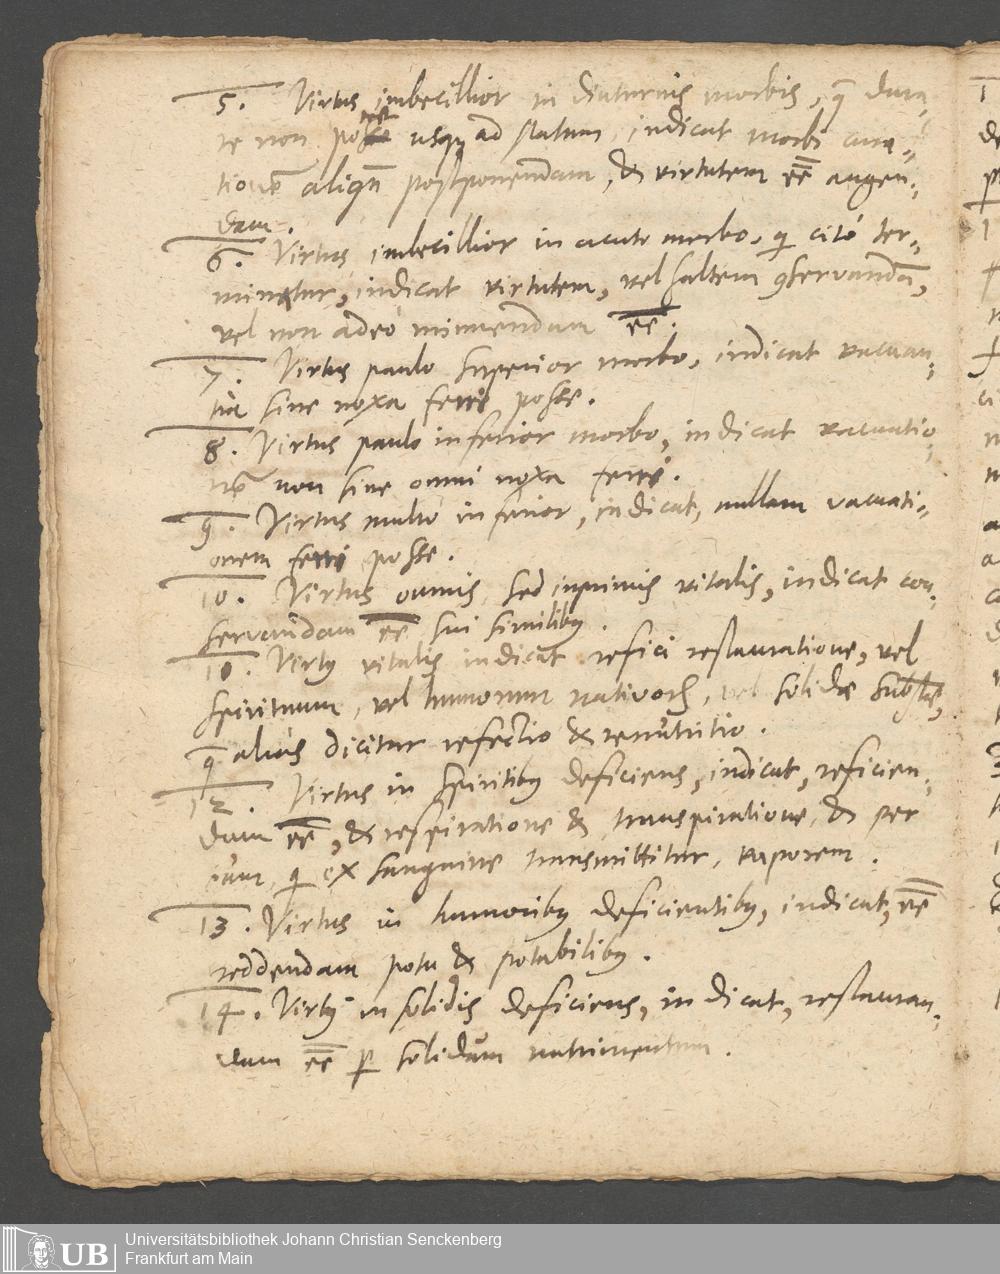 5. Virtus imbecillior in diuturnis morbis, q̃ dura-
re non potest usq3 ad statum, indicat morbi cura-
tionẽ aliqñ postponendam, & virtutem eẽ augen-
dam.
6. Virtus imbecillior in acuto morbo, qi citò ter-
minatur, indicat virtutem, vel saltem ꝯservandã,
vel non adeò minuendam eẽ.
7. Virtus paulo superior morbo, indicat vacuan-
tia sine noxa ferri posse.
8. Virtus paulo inferior morbo, indicat vacuatio-
nẽ non sine omni noxa ferri.
9. Virtus multo inferior, indicat, nullam vacuati-
onem ferri posse.
10. Virtus omnis, sed inprimis vitalis, indicat con-
servandam eẽ sui similibꝰ.
10. Virtꝰ vitalis indicat refici restauratione, vel
spirituum, vel humorum nativoꝝ, vel solidæ substãe,
q̃ aliàs dicitur refectio & renutritio.
12. Virtus in spiritibꝰ deficiens, indicat, reficien-
dam eẽ, & respiratione & transpiratione, & per
eum, qi ex sanguine transmittitur, vaporem.
13. Virtus in humoribꝰ deficientibꝰ, indicat, eẽ
reddendam potu & potabilibꝰ.
14. Virtꝰ in solidis deficiens, indicat, restauran-
dam eẽ ꝑ solidum nutrimentum.
UB
Universitätsbibliothek Johann Christian Senckenberg
Frankfurt am Main